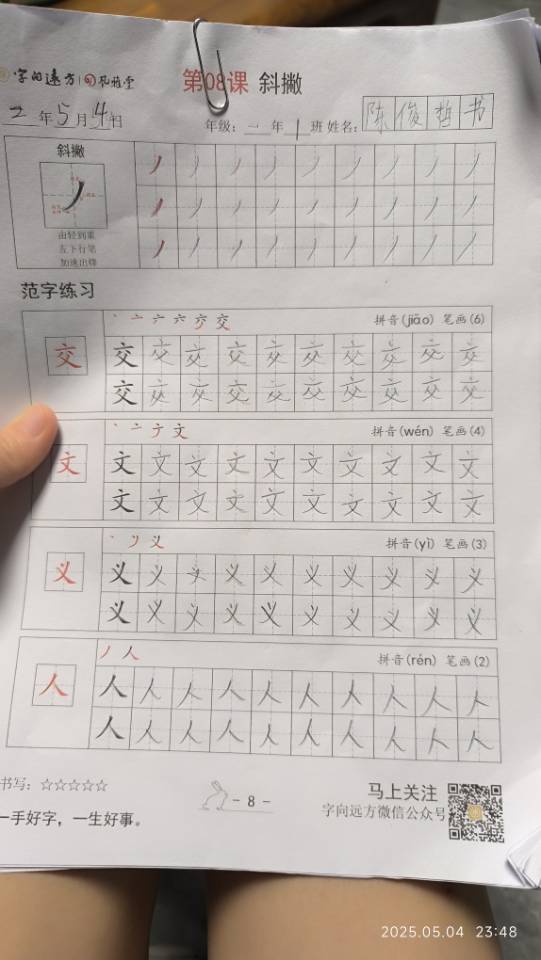 字的远方
第08课 斜撇
二年5月4日 年级：一年1班 姓名：陈俊哲书
斜撇
由轻到重
左下行笔
加速出锋
范字练习
拼音(jiāo) 笔画(6)
交 交 交 交 交 交 交 交 交 交 交
交 交 交 交 交 交 交 交 交 交
拼音(wén) 笔画(4)
文 文 文 文 文 文 文 文 文 文 文
文 文 文 文 文 文 文 文 文 文
拼音(yì) 笔画(3)
义 义 义 义 义 义 义 义 义 义 义
义 义 义 义 义 义 义 义 义 义
拼音(rén) 笔画(2)
人 人 人 人 人 人 人 人 人 人 人
人 人 人 人 人 人 人 人 人 人
书写：☆☆☆☆☆
一手好字，一生好事。
- 8 -
马上关注
字向远方微信公众号
2025.05.04 23:48